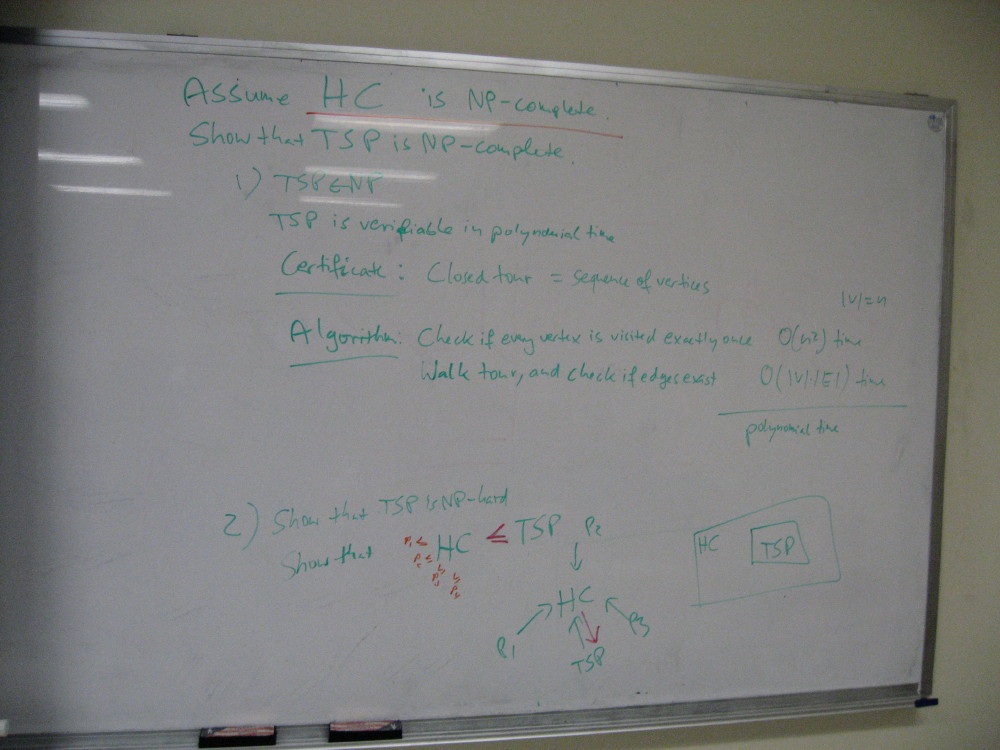 Assume HC is NP-complete.
Show that TSP is NP-complete.
1) TSP∈NP
TSP is verifiable in polynomial time
Certificate: Closed tour = sequence of vertices
|V|=n
Algorithm: Check if every vertex is visited exactly once O(n²) time
Walk tour, and check if edges exist O(|V|·|E|) time
polynomial time
2) Show that TSP is NP-hard
Show that P1 ≤ HC ≤ TSP
P2 ≤
P3 ≤
P2
HC
P1
P3
TSP
HC
TSP